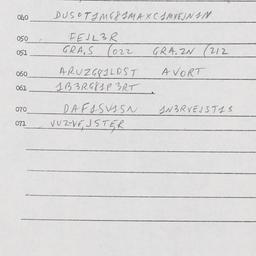 040 DUSOT1MG81MAXC1MXEJN1N
050 FEJL3R
051 GRA,S (022 GRA.2N (212
060 ARUZGQ1LDST AVORT
061 1B3RG81P3RT.
070 DAF1SV15N 1N3RVEJST1S
071 VUZVE,JSTE,R